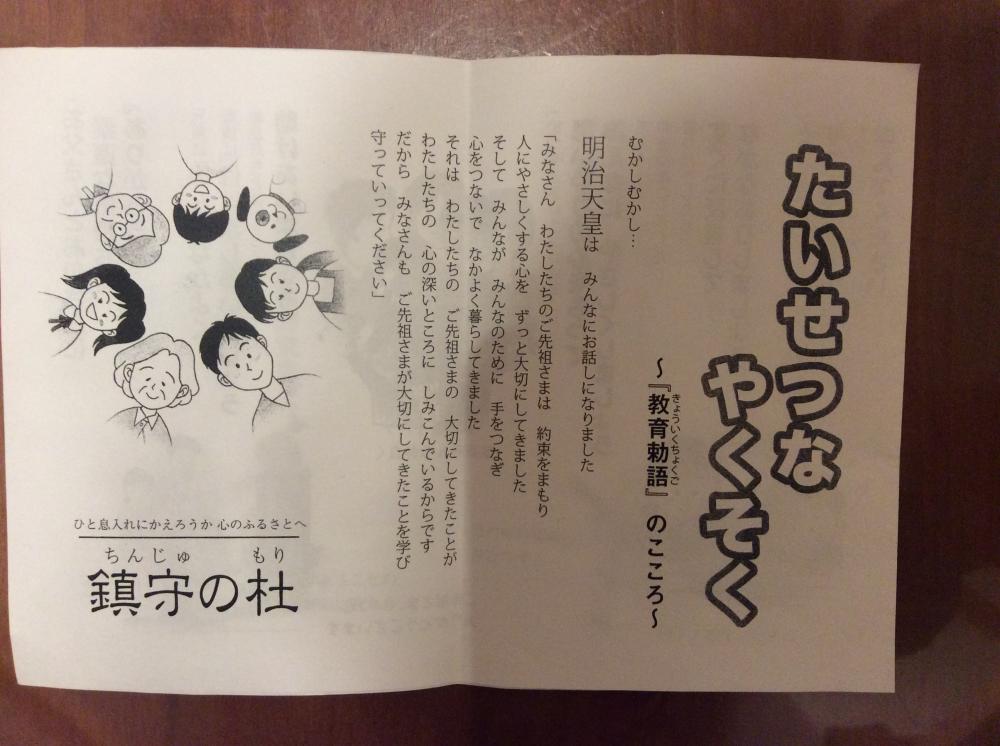 たいせつな
やくそく
～『教育勅語』のこころ～
きょういくちょくご
むかしむかし…
明治天皇は　みんなにお話しになりました
「みなさん　わたしたちのご先祖さまは　約束をまもり
人にやさしくする心を　ずっと大切にしてきました
そして　みんなが　みんなのために　手をつなぎ
心をつないで　なかよく暮らしてきました
それは　わたしたちの　ご先祖さまの　大切にしてきたことが
わたしたちの　心の深いところに　しみこんでいるからです
だから　みなさんも　ご先祖さまが大切にしてきたことを学び
守っていってください」
ひと息入れにかえろうか 心のふるさとへ
ちんじゅ　もり
鎮守の杜